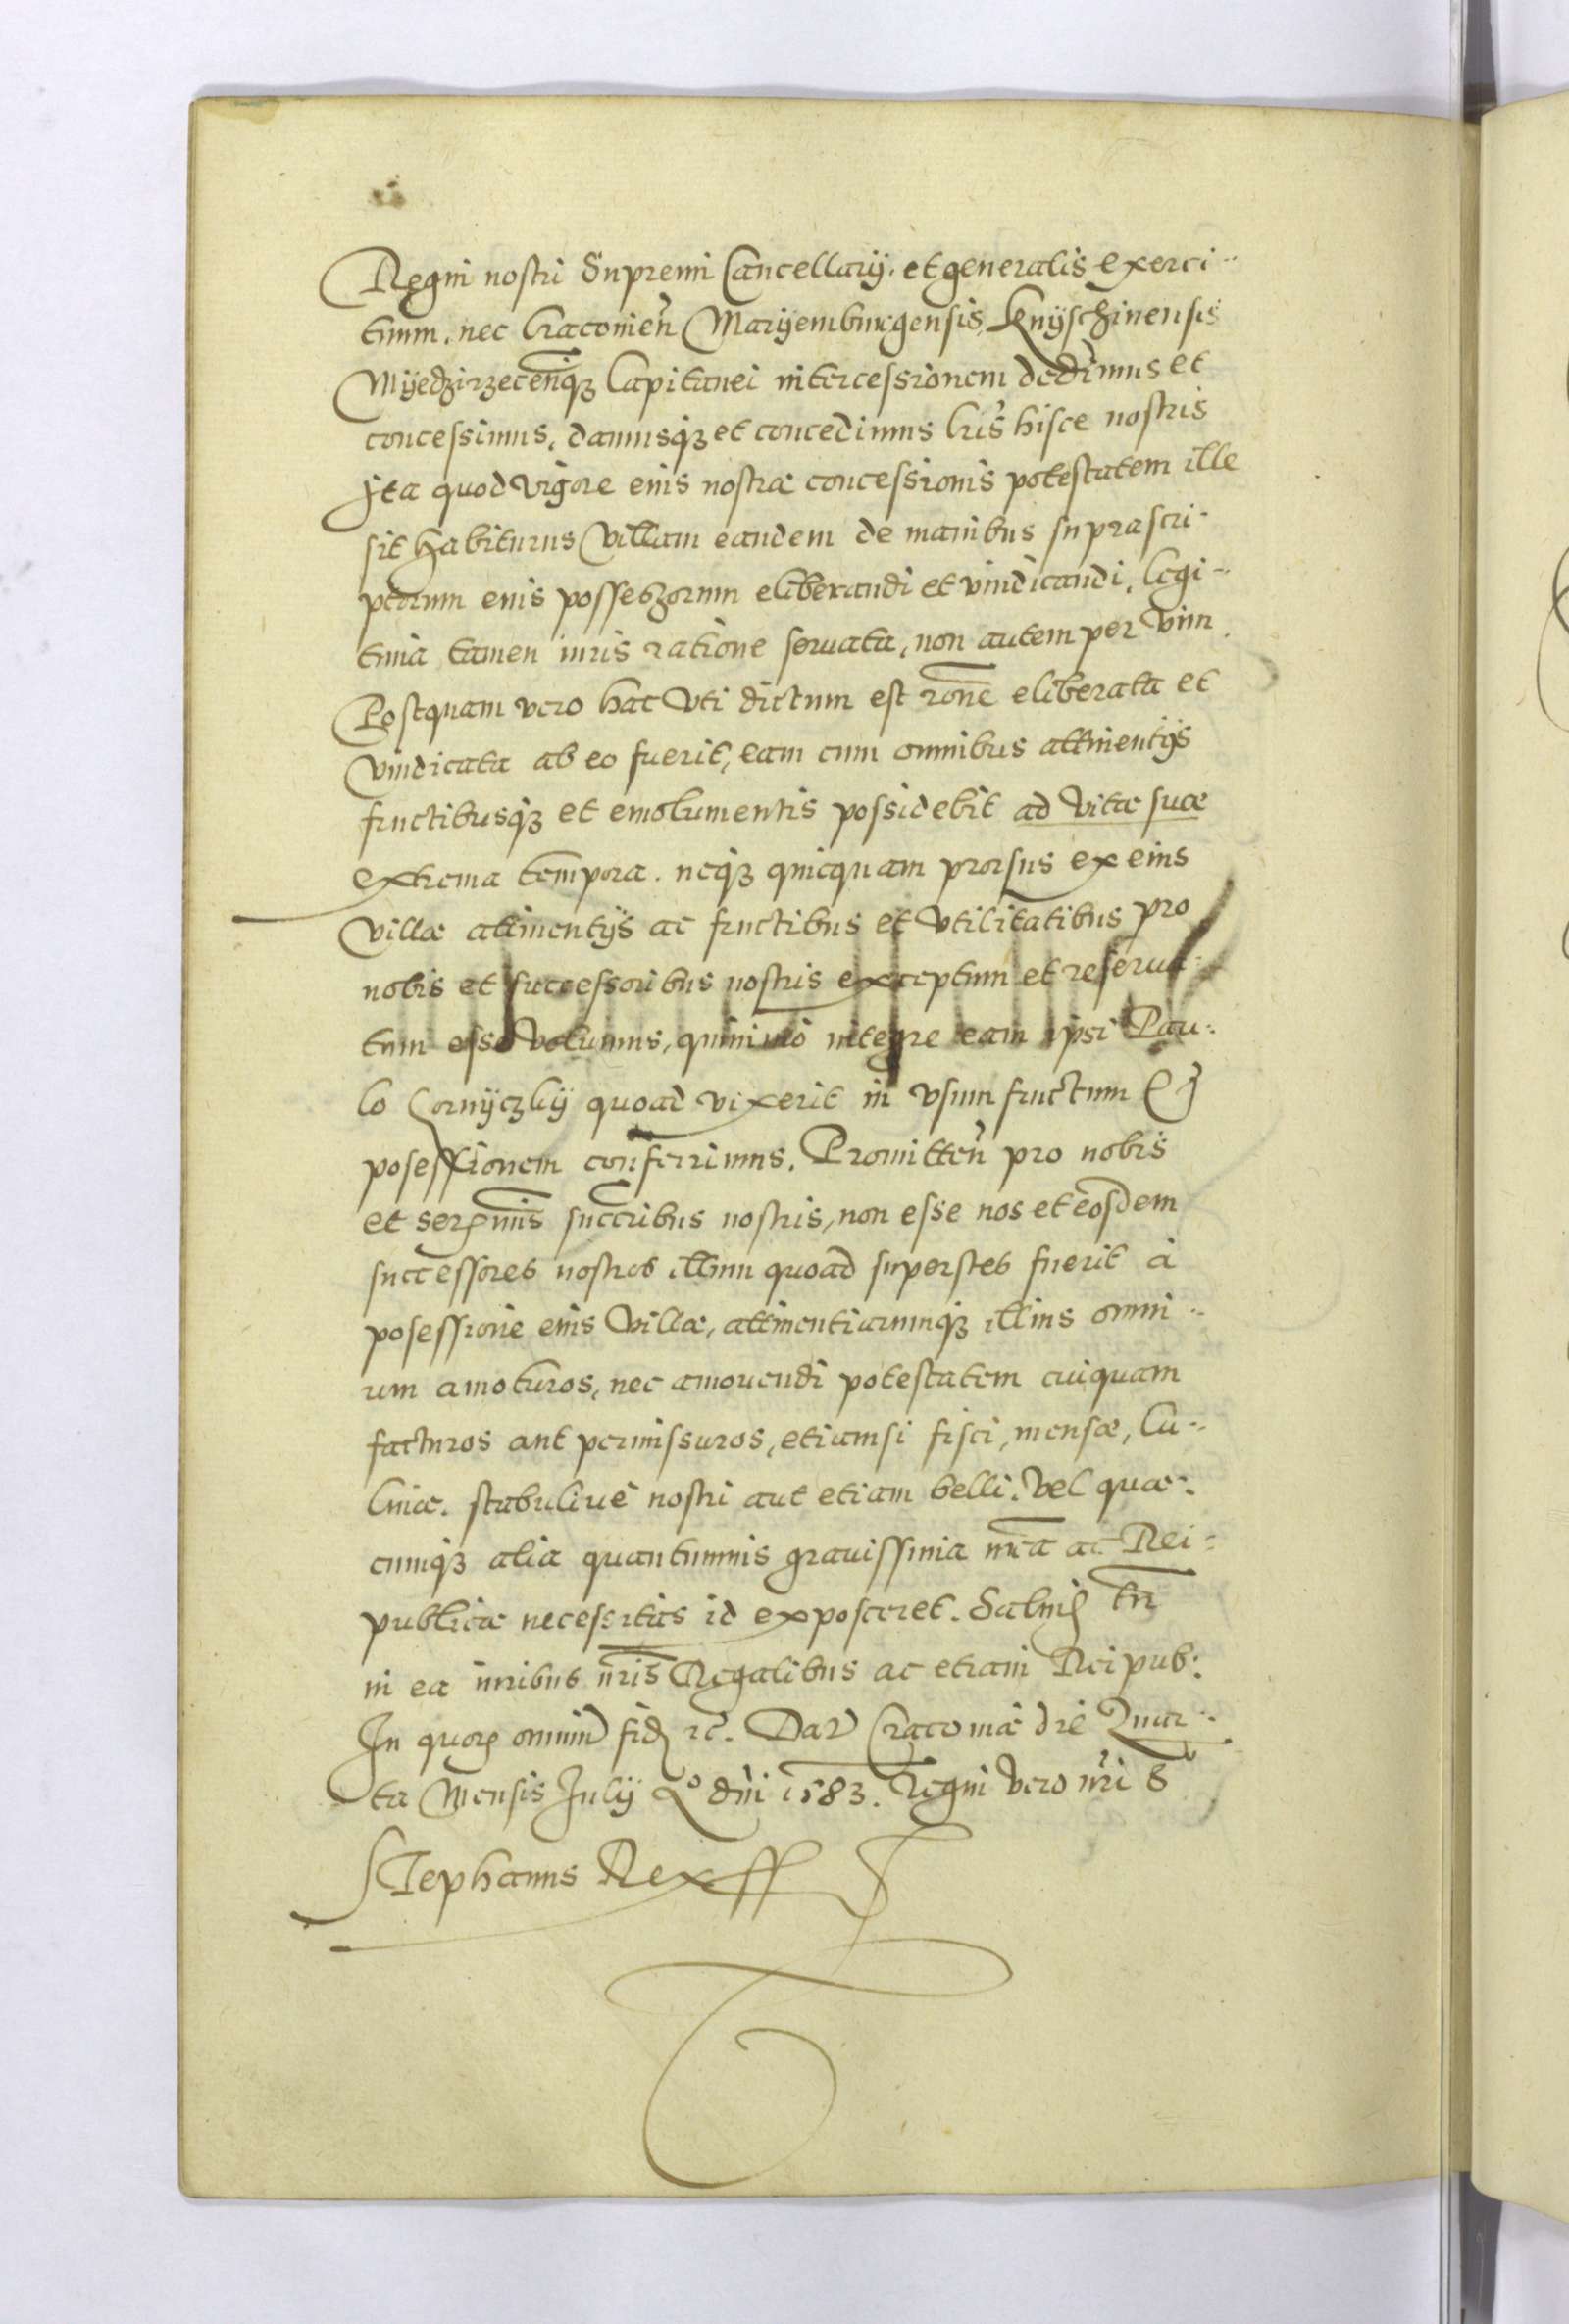 Regni nostri Supremi Cancellarij. et generalis exerci-
tuum. nec Cracovien̄ Marijemburgensis, Knijschinensis
Mijedzirzecen̄q3 Capitanei intercessionem dedimus et
concessimus, damusq3 et concedimus l̄ris hisce nostris
Jta quod vigore eius nostræ concessionis potestatem ille
sit habiturus villam eandem de manibus suprascri-
ptorum eius possessorum eliberandi et vindicandi, legi-
tima tamen iuris ratione servata, non autem per vim.
Postquam vero hac vti dictum est ron̄e eliberata et
vindicata ab eo fuerit, eam cum omnibus attinentijs
fructibusq3 et emolumentis possidebit ad vitæ suæ
extrema tempora. neq3 quicquam prorsus ex eius
villæ attinentijs ac fructibus et vtilitatibus pro
nobis et successoribus nostris exceptum et reserva-
tum esse volumus, quinimo integre eam ipsi Pau-
lo Cornijczkij quoad vixerit in vsumfructum &
posessionem conferrimus. Promitten̄ pro nobis
et ser mis succribus nostris, non esse nos et eosdem
successores nostros illum quoad superstes fuerit à
posessione eius villæ, attinentiarumq3 illius omni-
um amoturos, nec amovendi potestatem cuiquam
facturos aut permissuros, etiamsi fisci, mensæ, Cu-
linæ. stabulive nostri aut etiam belli. vel quæ-
cumq3 alia quantumvis gravissima n̄ra ac Rei-
publicæ necessitas id exposceret. Salvis tn̄
in ea iuribus n̄ris Regalibus ac etiam Reipub:
In quor omniu fid rc. Dat Cracoviæ die Quar-
ta Mensis Julij Ao dn̄i 1583. Regni vero n̄ri 8
Stephanus Rex ff